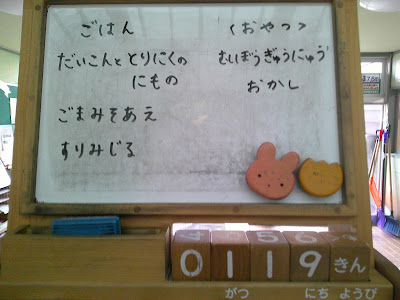 ごはん
だいこんと とりにくの
にもの
ごまみそあえ
すりみじる
<おやつ>
むしぼうぎゅうにゅう
おかし
0119きん
がつ にち ようび